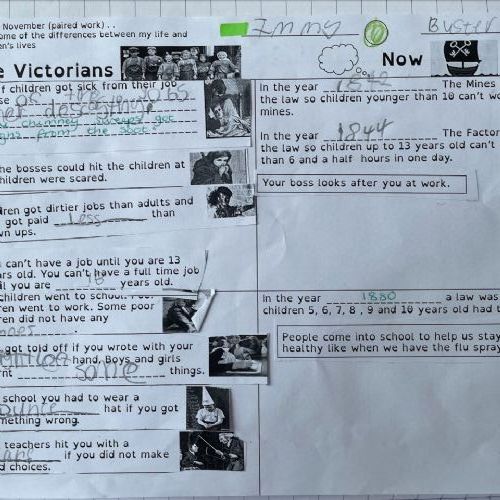 November (paired work) . .
ome of the differences between my life and
en's lives
Immy
Buster
e Victorians
Now
f children got sick from their job
of
chimney
from the
he bosses could hit the children at
hildren were scared.
ren got dirtier jobs than adults and
got paid less than
wn ups.
can't have a job until you are 13
rs old. You can't have a full time job
il you are 18 years old.
children went to school.
ren went to work. Some poor
dren did not have any
got told off if you wrote with your
hand. Boys and girls
rnt some things.
school you had to wear a
hat if you got
mething wrong.
teachers hit you with a
if you did not make
d choices.
In the year 1842 The Mines
the law so children younger than 10 can't wo
mines.
In the year 1844 The Factor
the law so children up to 13 years old can't
than 6 and a half hours in one day.
Your boss looks after you at work.
In the year 1880 a law was
children 5, 6, 7, 8 , 9 and 10 years old had t
People come into school to help us stay
healthy like when we have the flu spray